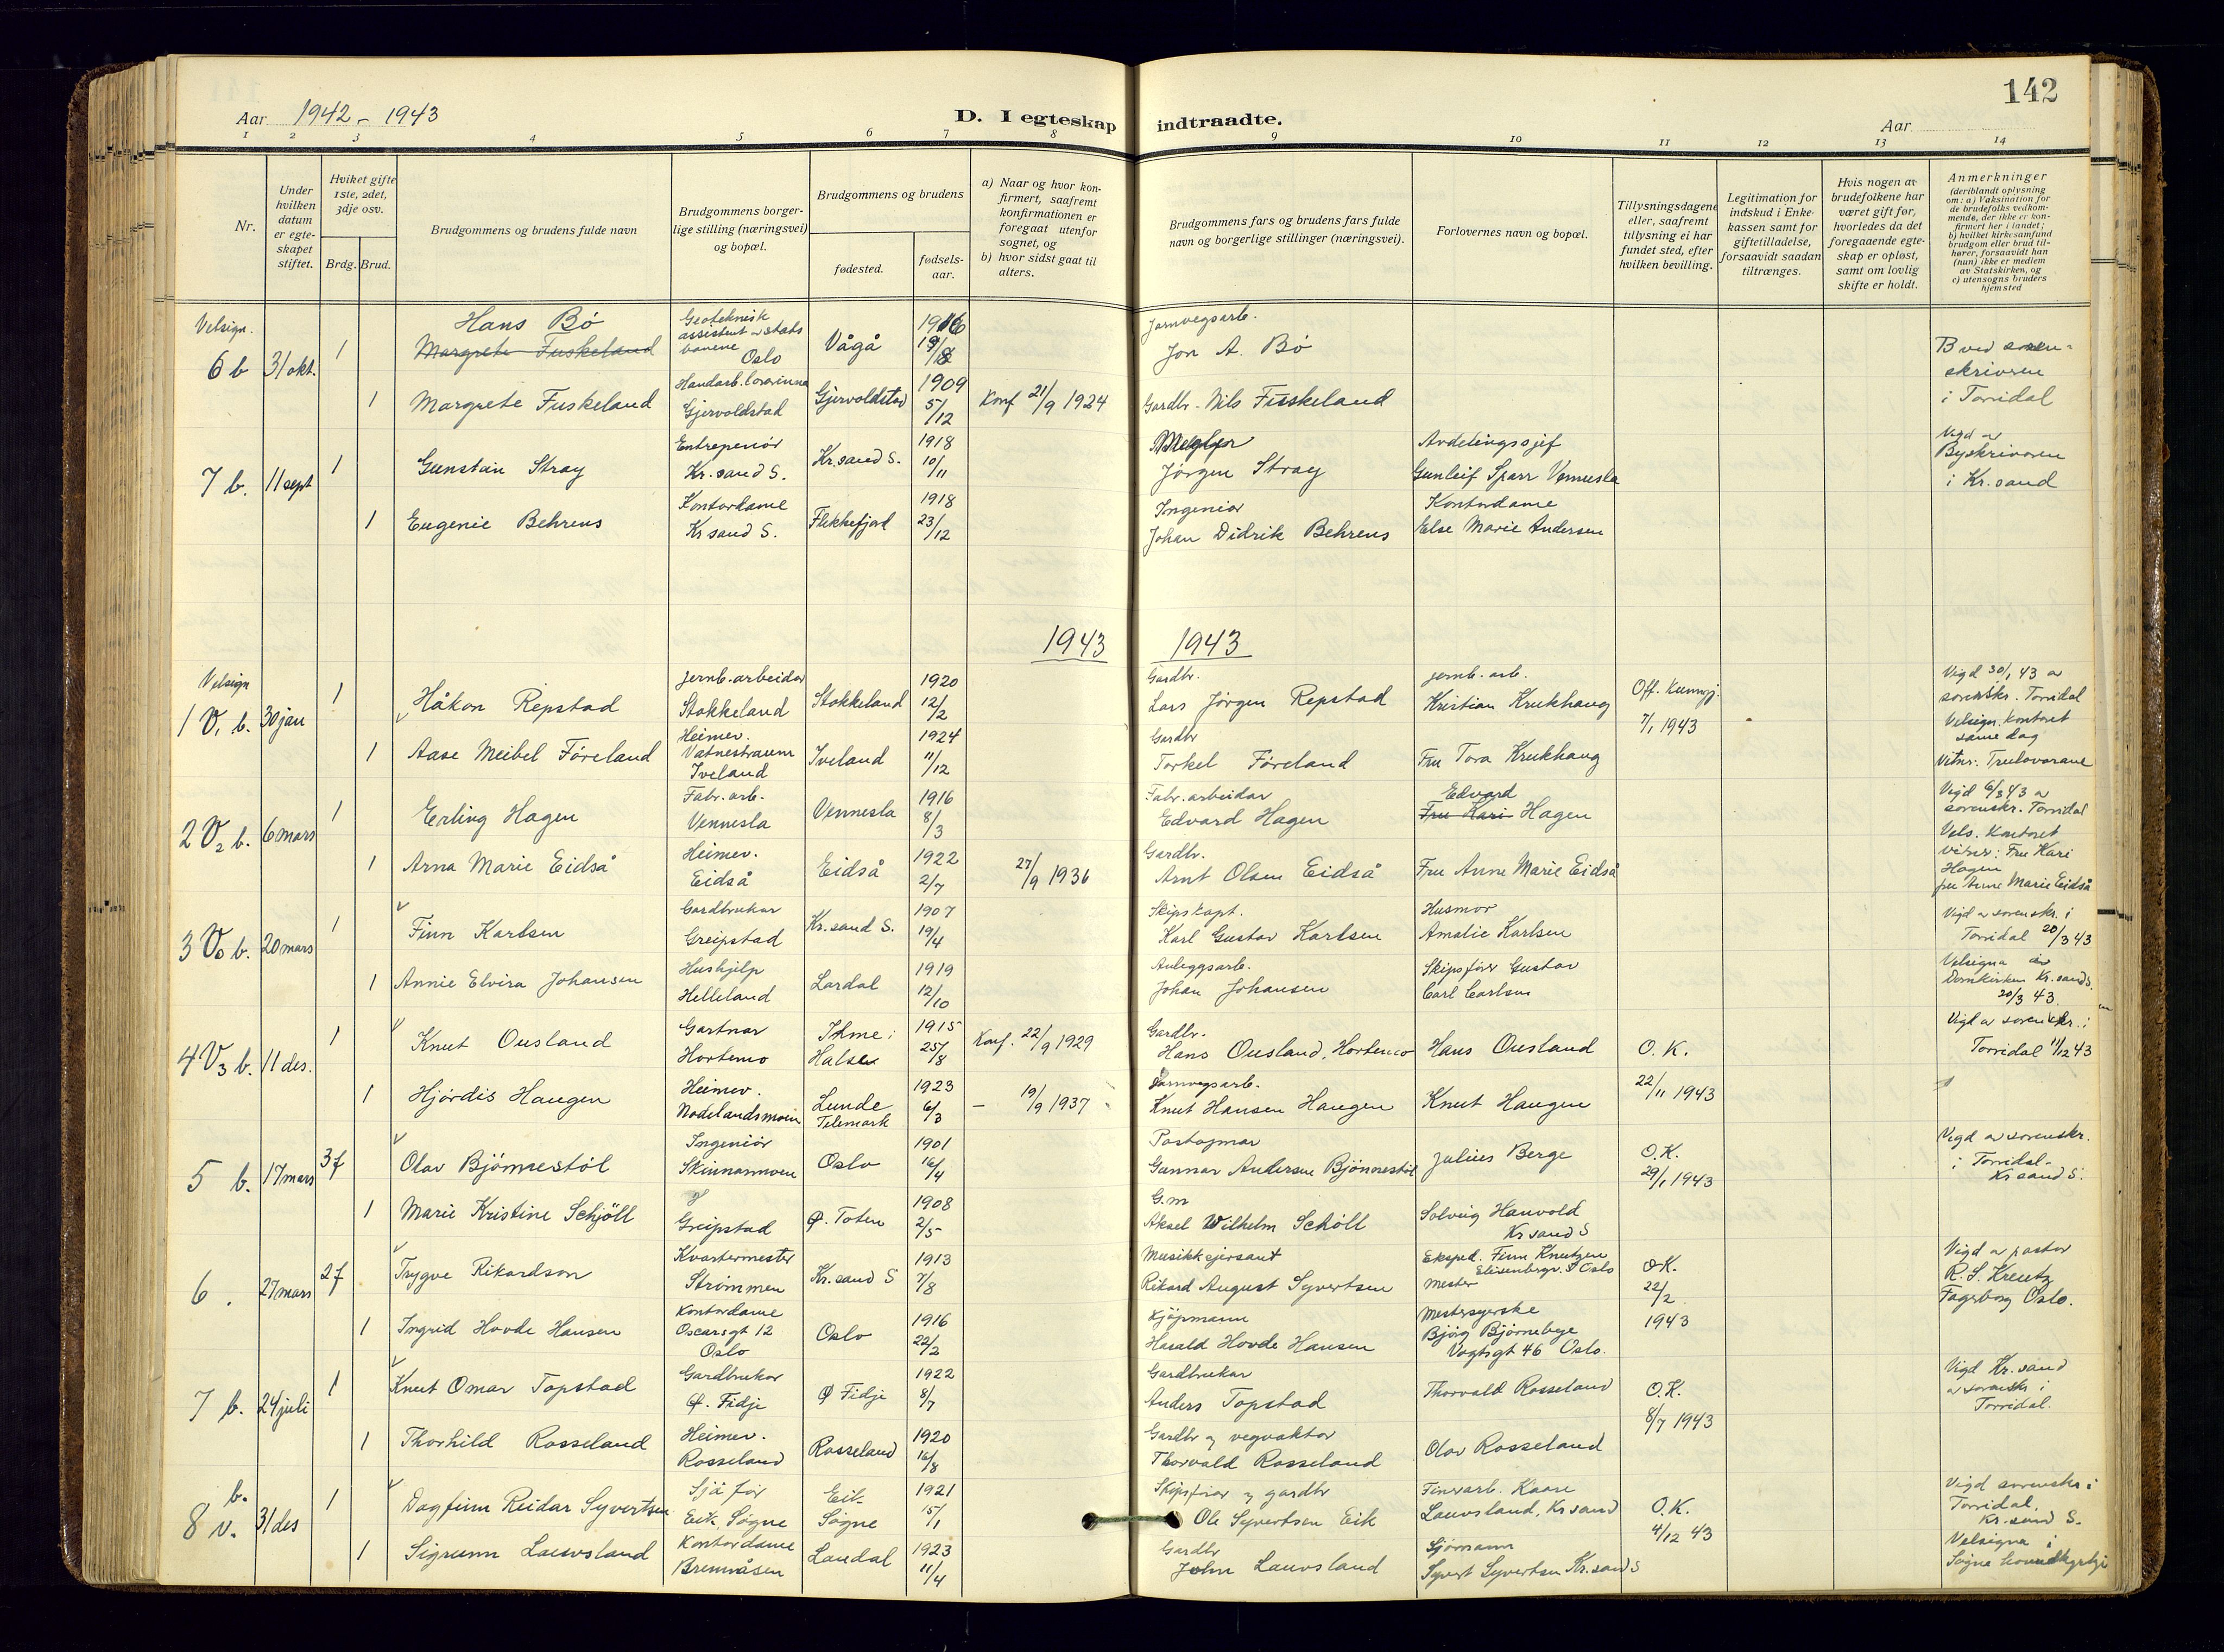 142
Aar 1942 - 1943
D. I egteskap indtraadte.
Aar
1 2 3 4 5 6 7 8 9 10 11 12 13 14
Nr.
Under hvilken datum er egte-skapet stiftet.
Hvilket gifte 1ste, 2det, 3dje osv.
Brdg. Brud.
Brudgommens og brudens fulde navn
Brudgommens borger-lige stilling (næringsvei) og bopæl.
Brudgommens og brudens
fødested.
fødsels-aar.
a) Naar og hvor kon-firmert, saafremt konfirmationen er foregaat utenfor sognet, og
b) hvor sidst gaat til alters.
Brudgommens fars og brudens fars fulde navn og borgerlige stillinger (næringsvei).
Forlovernes navn og bopæl.
Tillysningsdagene eller, saafremt tillysning ei har fundet sted, efter hvilken bevilling.
Legitimation for indskud i Enke-kassen samt for giftetilladelse, forsaavidt saadan tiltrænges.
Hvis nogen av brudefolkene har været gift før, hvorledes da det foregaaende egte-skap er opløst, samt om lovlig skifte er holdt.
Anmerkninger
(deriblandt oplysning om: a) Vaksination for de brudefolks vedkom-mende, der ikke er kon-firmert her i landet; b) hvilket kirkesamfund brudgom eller brud til-hører, forsaavidt han (hun) ikke er medlem av Statskirken, og c) utensogns bruders hjemsted
Velsign.
6 b 31 okt. 1
Hans Bö
Margrete Fuskeland
Geoteknisk assistent v stats banene Oslo
Vågå
1916
19/8
Jarnvegsarb.
Jon A. Bö
B ved soren-
skrivaren
i Torridal
1 Margrete Fuskeland
Handarb.lærarinna
Gjervoldstad
Gjervoldstad
1909
5/12
Konf 21/9 1924
Gardbr. Nils Fuskeland
7 b. 11 sept 1
Gunstein Stray
Entreprenör
Kr.sand S.
Kr.sand S.
1918
10/11
Megler
Jörgen Stray
Avdelingssjef
Gunleif Sparr Vennesla
Vigd av
Byskrivaren
i Kr.sand
1 Eugenie Behrens
Kontordame
Kr sand S.
Flekkefjord
1918
23/12
Ingeniør
Johan Didrik Behrens
Kontordame
Else Marie Andersen
1943 1943
Velsign
1 V1 b. 30 jan 1
Håkon Repstad
jernb.arbeidar
Stokkeland
Stokkeland
1920
12/2
Gardbr.
Lars Jörgen Repstad
jernb. arb.
Kristian Krukhaug
Off. Kunngj.
7/1 1943
Vigd 30/1 43 av
sorenskr. Torridal
Velsign. kontoret
same dag
Vitnr: Trulovarane
1 Aase Meibel Föreland
Heimev.
Vatnestraum
Iveland
Iveland
1924
11/12
Gardbr
Torkel Föreland
Fru Tora Krukhaug
2 V2 b. 6 mars 1
Erling Hagen
Fabr.arb.
Vennesla
Vennesla
1916
8/3
Fabr.arbeidar
Edvard Hagen
Edvard
Fru Kari Hagen
Vigd 6/3 43 av
sorenskr. Torridal
Vels. Kontoret
vitnr: Fru Kari
Hagen
fru Anne Marie Eidså
1 Arna Marie Eidså
Heimev.
Eidså
Eidså
1922
2/7
27/9 1936
Gardbr.
Arnt Olsen Eidså
Fru Anne Marie Eidså
3 V0 b. 20 mars 1
Finn Karlsen
Gardbrukar
Greipstad
Kr.sand S.
1907
19/4
Skipskapt.
Karl Gustav Karlsen
Husmor
Amalie Karlsen
Vigd av sorenskr. i
Torridal 20/3 43
Velsigna av
Domkirken Kr.sand S.
20/3 43.
1 Annie Elvira Johansen
Hushjelp
Helleland
Lardal
1919
12/10
Anleggsarb.
Johan Johansen
Skipsförer Gustav
Carl Carlsen
4 V3 b. 11 des. 1
Knut Ousland
Gartnar
Hortemo
Halse
1915
25/8
Konf. 22/9 1929
Gardbr.
Hans Ousland, Hortemo
Hans Ousland
O. K.
22/11 1943
Vigd av sorenskr. i
Torridal 11/12 43
1 Hjördis Haugen
Heimev.
Nodelandsmoen
Lunde
Telemark
1923
6/3
— 19/9 1937
Jarnvegsarb.
Knut Hansen Haugen
Knut Haugen
5 b. 17 mars 3f
Olav Bjömnestöl
Ingeniör
Skinnarmoen
Oslo
1901
16/4
Postopnar
Gunnar Andersen Bjönnestöl
Julius Berge
O.K.
29/1 1943
Vigd av sorenskr.
i Torridal-
Kr sand S.
1 Marie Kristine Schjöll
Greipstad
Ø. Toten
1908
2/5
G.m
Aksel Wilhelm Schöll
Solveig Hauvold
Kr sand S
6 . 27 mars 2f
Trygve Rikardson
Kvartermester
Strömmen
Kr.sand S
1913
7/8
Musikksjersant
Rikard August Syvertsen
Eksped. Finn Knutzen
Elisenbergv. 8 Oslo
Mester
O.K.
22/2
1943
Vigd av pastor
R. S. Kreutz
Fagerborg Oslo.
1 Ingrid Hovde Hansen
Kontordame
Oscarsgt 12
Oslo
Oslo
1916
22/2
Kjöpmann
Harald Hovde Hansen
Mestersyerske
Bjørg Bjørneboe
Vogtsgt 46 Oslo.
7 b. 24 juli 1
Knut Omar Topstad
Gardbrukar
Ø. Fidje
Ø Fidje
1922
8/7
Gardbrukar
Anders Topstad
Thorvald Rosseland
O.K.
8/7 1943
Vigd Kr.sand
av sorenskr i
Torridal.
1 Thorhild Rosseland
Heimev.
Rosseland
Rosseland
1920
16/8
Gardbr og vegvaktar
Thorvald Rosseland
Olav Rosseland
b.
8 v. 31 des 1
Dagfinn Reidar Syvertsen
Sjåför
Eik, Søgne
Eik
Søgne
1921
15/1
Skipsförar og gardbr
Ole Syvertsen Eik
Finerarb. Kaare
Lauvsland, Kr sand
O.K.
4/12 43
Vigd sorenskr i
Torridal.
Kr.sand S.
Velsigna i
Søgne hovudkyrkje
1 Sigrunn Lauvsland
Kontordame
Brennåsen
Laudal
1923
11/4
Gardbr
John Lauvsland
Sjömann
Syvert Syvertsen Kr.sand S